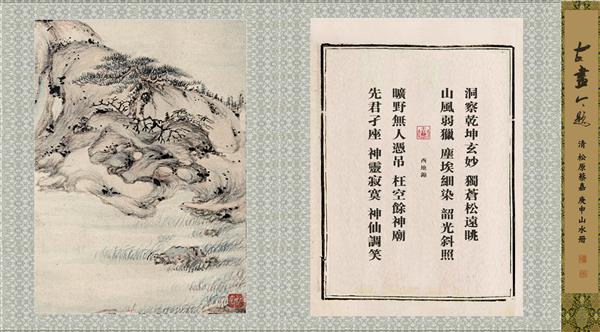 古畫今題
清 松原蔡嘉 庚申山水冊
洞察乾坤玄妙 獨蒼松遠眺
山風弱獵 塵埃細染 韶光斜照
西地錦
曠野無人憑吊 枉空餘神廟
先君孑座 神靈寂寞 神仙調笑